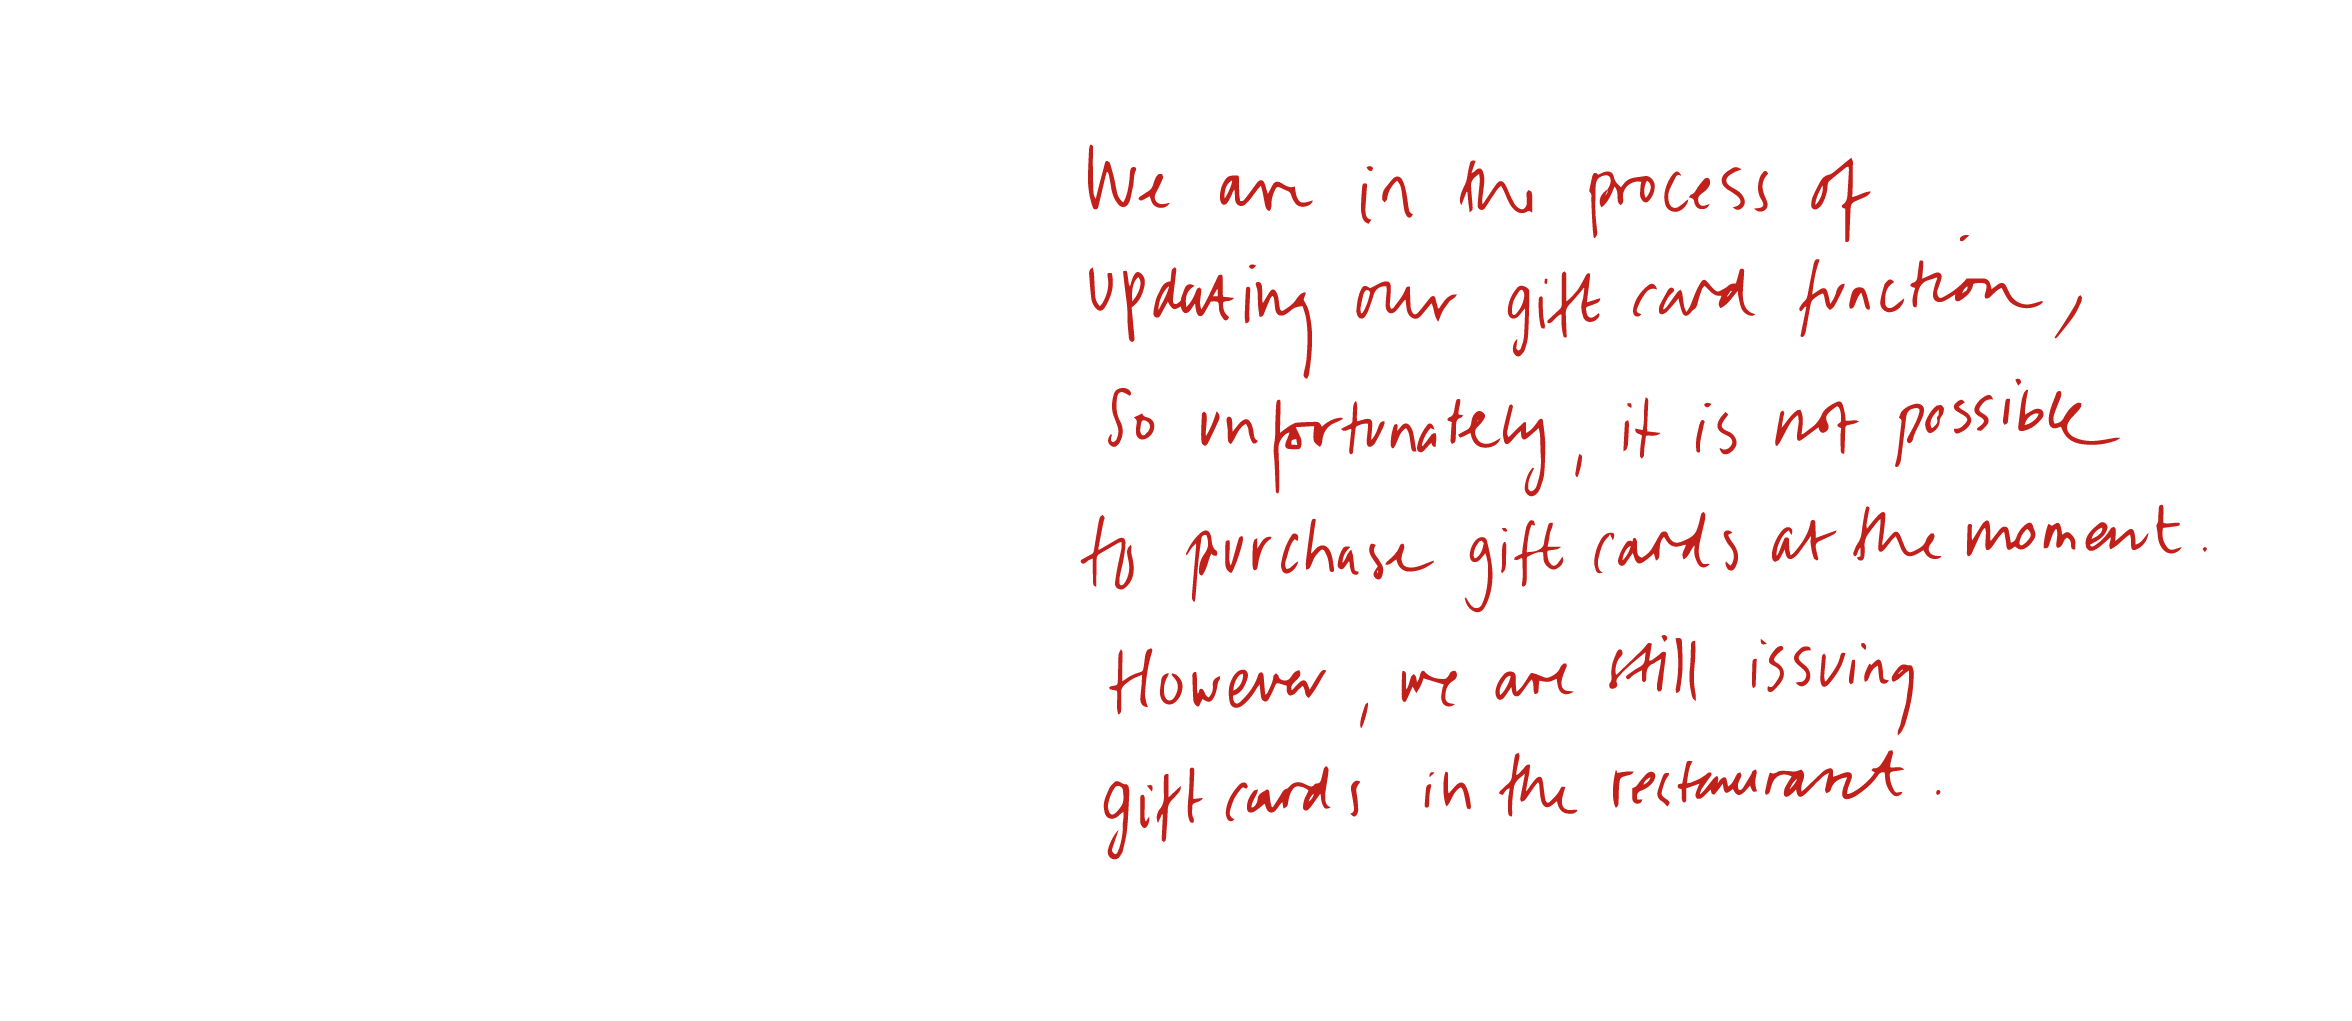 We are in the process of
updating our gift card function,
So unfortunately, it is not possible
to purchase gift cards at the moment.
However, we are still issuing
gift cards in the restaurant.